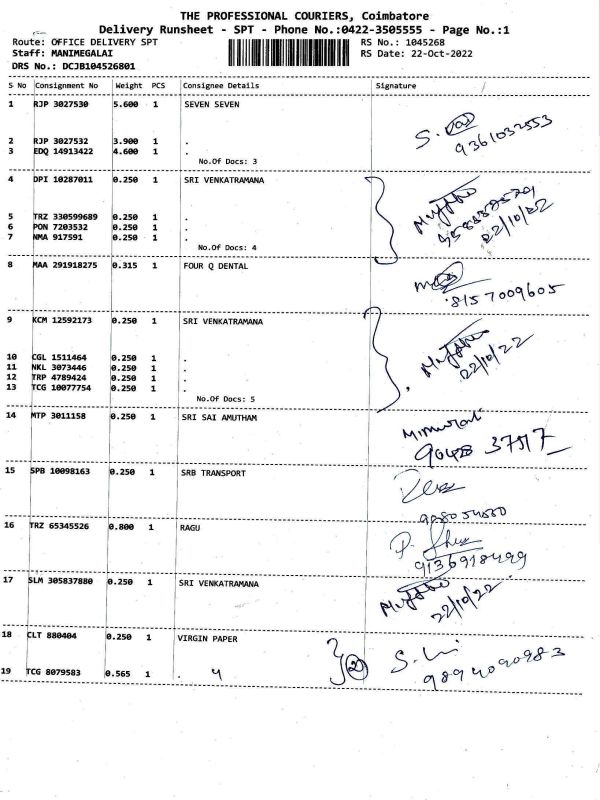 THE PROFESSIONAL COURIERS, Coimbatore
Delivery Runsheet - SPT - Phone No.:0422-3505555 - Page No.:1
Route: OFFICE DELIVERY SPT RS No.: 1045268
Staff: MANIMEGALAI RS Date: 22-Oct-2022
DRS No.: DCJB104526801
S No Consignment No Weight PCS Consignee Details Signature
1 RJP 3027530 5.600 1 SEVEN SEVEN
2 RJP 3027532 3.900 1 .
9361032553
3 EDQ 14913422 4.600 1 .
No.Of Docs: 3
4 DPI 10287011 0.250 1 SRI VENKATRAMANA
5 TRZ 330599689 0.250 1 .
6 PON 7203532 0.250 1 .
22/10/22
7 NMA 917591 0.250 1 .
No.Of Docs: 4
8 MAA 291918275 0.315 1 FOUR Q DENTAL
8157009605
9 KCM 12592173 0.250 1 SRI VENKATRAMANA
10 CGL 1511464 0.250 1 .
22/10/22
11 NKL 3073446 0.250 1 .
12 TRP 4789424 0.250 1 .
13 TCG 10077754 0.250 1 .
No.Of Docs: 5
14 MTP 3011158 0.250 1 SRI SAI AMUTHAM
15 SPB 10098163 0.250 1 SRB TRANSPORT
16 TRZ 65345526 0.800 1 RAGU
9136918499
17 SLM 305837880 0.250 1 SRI VENKATRAMANA
22/10/22
18 CLT 880404 0.250 1 VIRGIN PAPER
2
9894090983
19 TCG 8079583 0.565 1 .